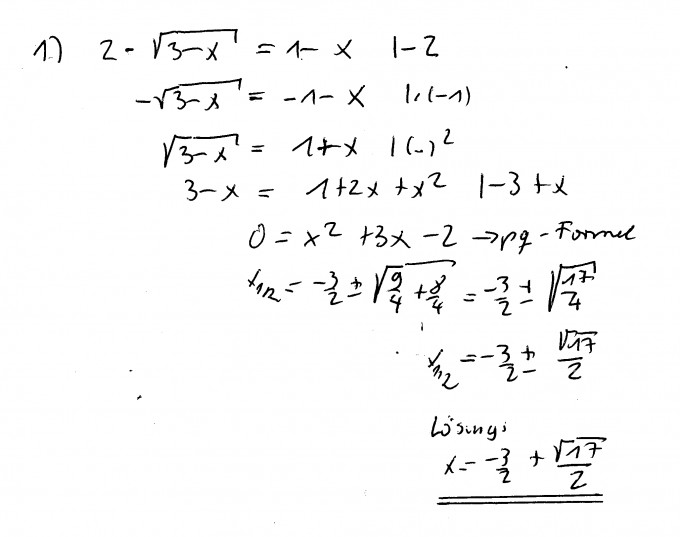 1.) 2 - √(3-x) = 1 - x |-2
-√(3-x) = -1 - x |·(-1)
√(3-x) = 1+x |(..)²
3-x = 1+2x+x² |-3+x
0 = x² +3x -2 → pq-Formel
x1/2 = -3/2 ± √(9/4 + 8/4) = -3/2 ± √(17/4)
x1/2 = -3/2 ± √17/2
Lösung:
x = -3/2 + √17/2